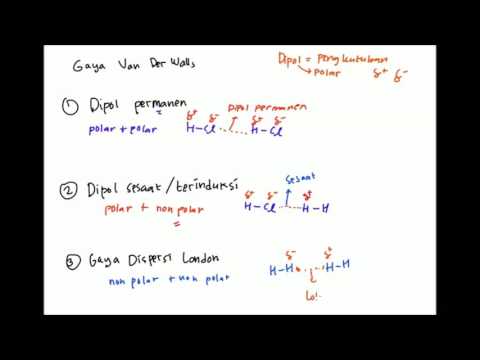 Gaya Van Der Walls
Dipol = pengkutuban
polar δ+ δ-
① Dipol permanen
Dipol permanen
polar + polar
δ+ δ- δ+ δ-
H-Cl ... H-Cl
② Dipol sesaat/terinduksi
sesaat
polar + non polar
δ+ δ- δ+
H-Cl ... H-H
③ Gaya Dispersi London
non polar + non polar
δ- δ+
H-H ... H-H